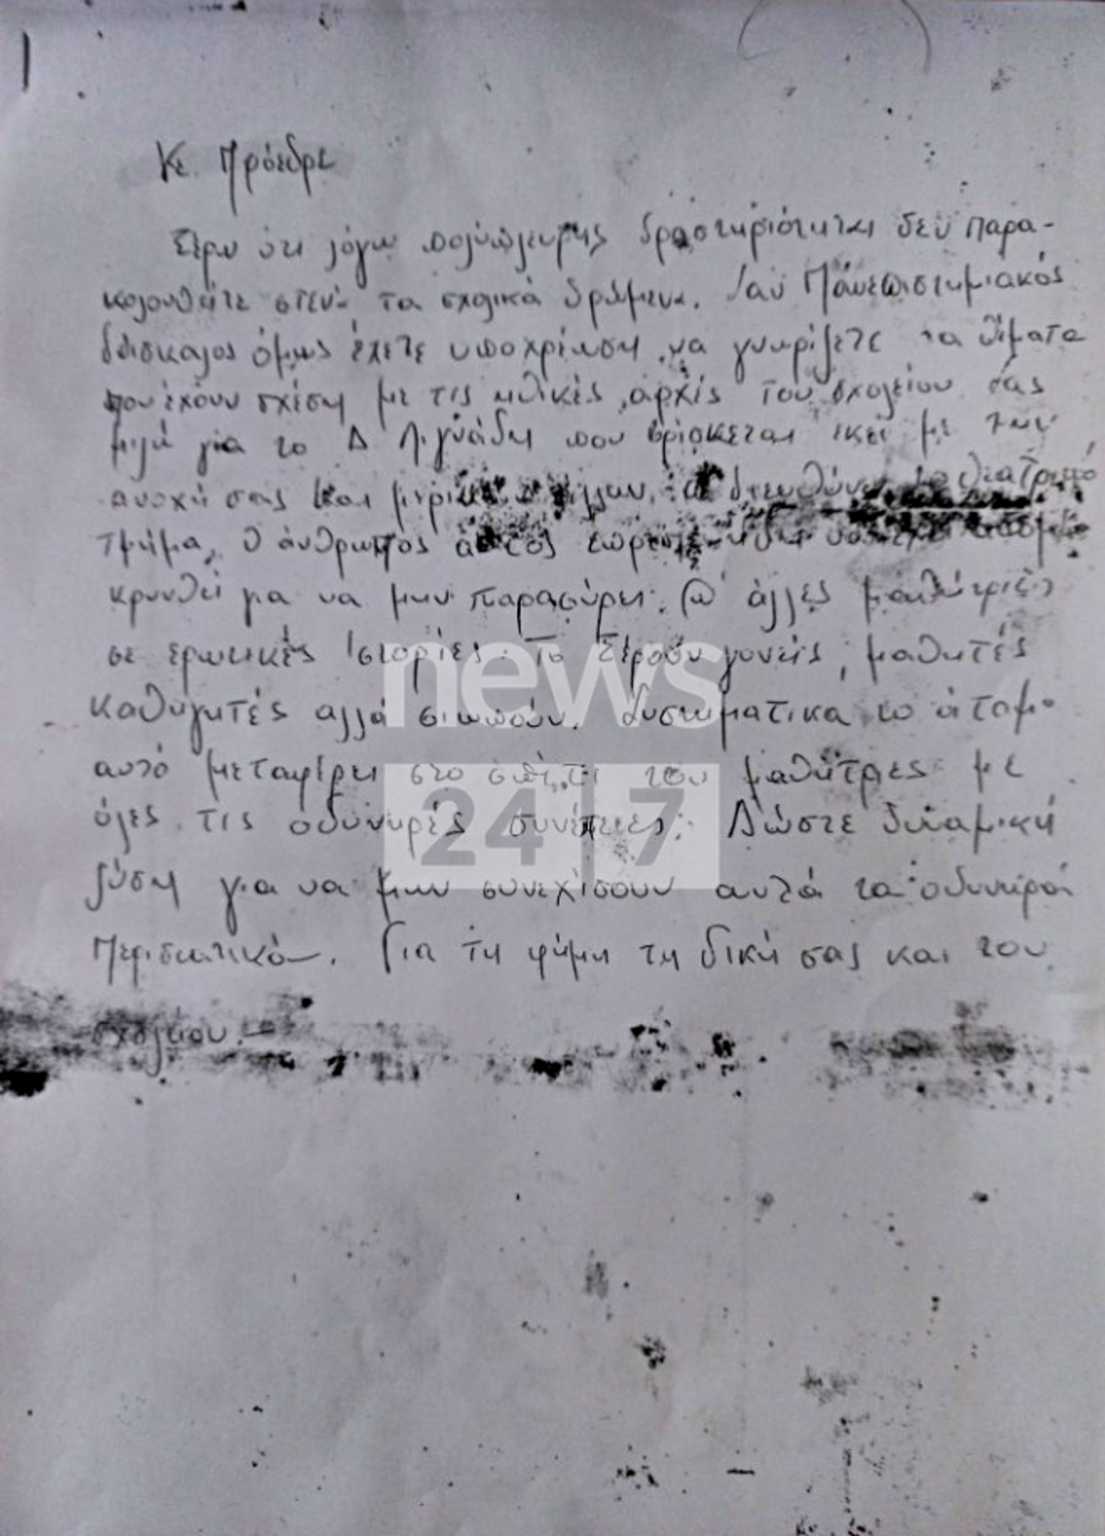 Κε Πρόεδρε
Ξέρω ότι λόγω πολύπλευρης δραστηριότητας δεν παρα-
κολουθείτε στενά τα σχολικά δρώμενα. Σαν Πανεπιστημιακός
δάσκαλος όμως έχετε υποχρέωση να γνωρίζετε τα θέματα
που έχουν σχέση με τις ηθικές αρχές του σχολείου σας
μιλώ για το Δ Λιγνάδη που βρίσκεται εκεί με την
ανοχή σας και μερικών άλλων, να διευθύνει το θεατρικό
τμήμα, Ο άνθρωπος αυτός έπρεπε ήδη να έχει απομα-
κρυνθεί για να μην παρασύρει κι άλλες μαθήτριες
σε ερωτικές ιστορίες. Το ξέρουν γονείς, μαθητές
καθηγητές αλλά σιωπούν. Συστηματικά το άτομο
αυτό μεταφέρει στο σπίτι του μαθήτριες με
όλες τις οδυνηρές συνέπειες. Δώστε δυναμική
λύση για να μην συνεχίσουν αυτά τα οδυνηρά
περιστατικά. Για τη φήμη τη δική σας και του
σχολείου.
news
24|7